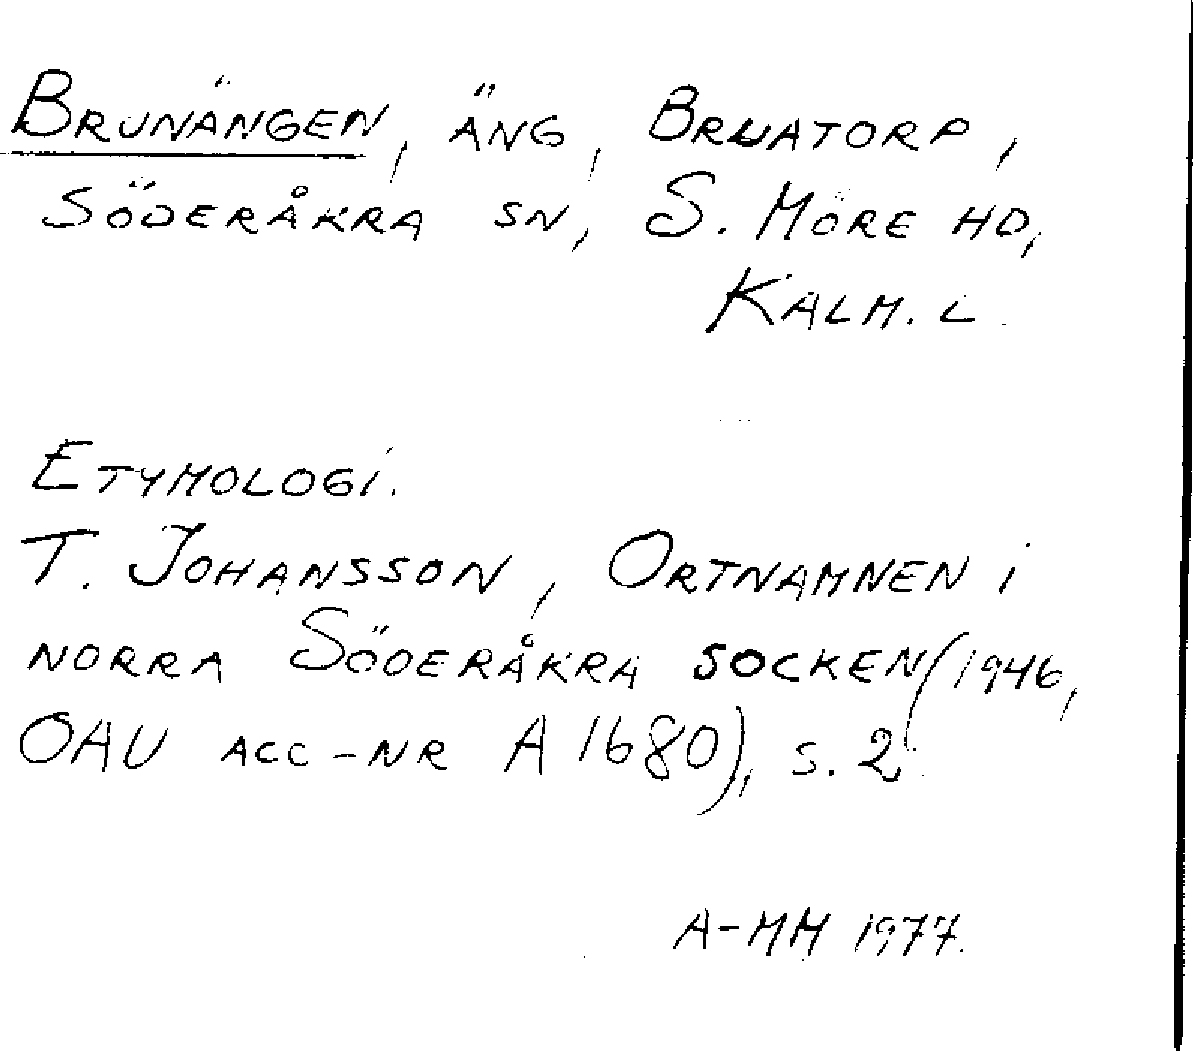 BRUNÄNGEN, ÄNG, BRUATORP,
SÖDERÅKRA SN, S. MÖRE HD,
KALM. L.
ETYMOLOGI.
T. JOHANSSON, ORTNAMNEN i
NORRA SÖDERÅKRA SOCKEN (1946,
OAU ACC-NR A 1680), S. 2.
A-MM 1977.